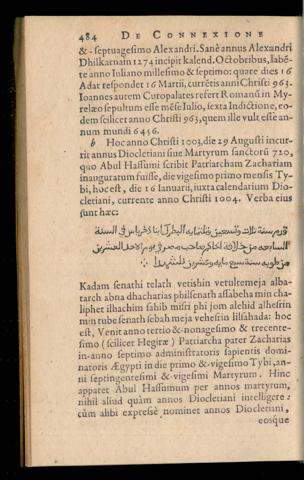 484 DE CONNEXIONE
& septuagesimo Alexandri. Sanè annus Alexandri
Dhilkarnain 1274 incipit kalend. Octobribus, labẽ-
te anno Iuliano millesimo & septimo: quare dies 16
Adat respondet 16 Martii, currẽtis anni Christi 963.
Ioannes autem Curopalates refert Romanũ in My-
relæo sepultum esse mẽse Iulio, sexta Indictione, eo-
dem scilicet anno Christi 963, quem ille vult esse an-
num mundi 6456.
b Hoc anno Christi 1003, die 29 Augusti incur-
rit annus Diocletiani siue Martyrum sanctorũ 720,
quo Abul Hassumi scribit Patriarcham Zachariam
inauguratum fuisse, die vigesimo primo mensis Ty-
bi, hoc est, die 16 Ianuarii, iuxta calendarium Dio-
cletiani, currente anno Christi 1004. Verba eius
sunt hæc:
قدم سنة ثلاث وتسعين وثلثمايه البطرك ابنا ذخرياس في السنة
السابعه من خلافة الحاكم صاحب مصر في يوم الاحد العشرين
من طوبه سنة سبع مايه وعشرين للشهدا
Kadam senathi telath vetishin vetultemeja alba-
tarch abna dhacharias philsenath assabeha min cha-
liphet ilhachim sahib misri phi jom alehid alhesrin
min tube senath sebah meja vehesrin lilsahada: hoc
est, Venit anno tertio &-nonagesimo & trecente-
simo (scilicet Hegiræ) Patriarcha pater Zacharias
in-anno septimo administratoris sapientis domi-
natoris Ægypti in die primo &-vigesimo Tybi, an-
ni septingentesimi &-vigesimi Martyrum. Hinc
apparet Abul Hassumum per annos martyrum,
nihil aliud quàm annos Diocletiani intelligere:
cùm ahbi expressè nominet annos Diocletiani,
eosque